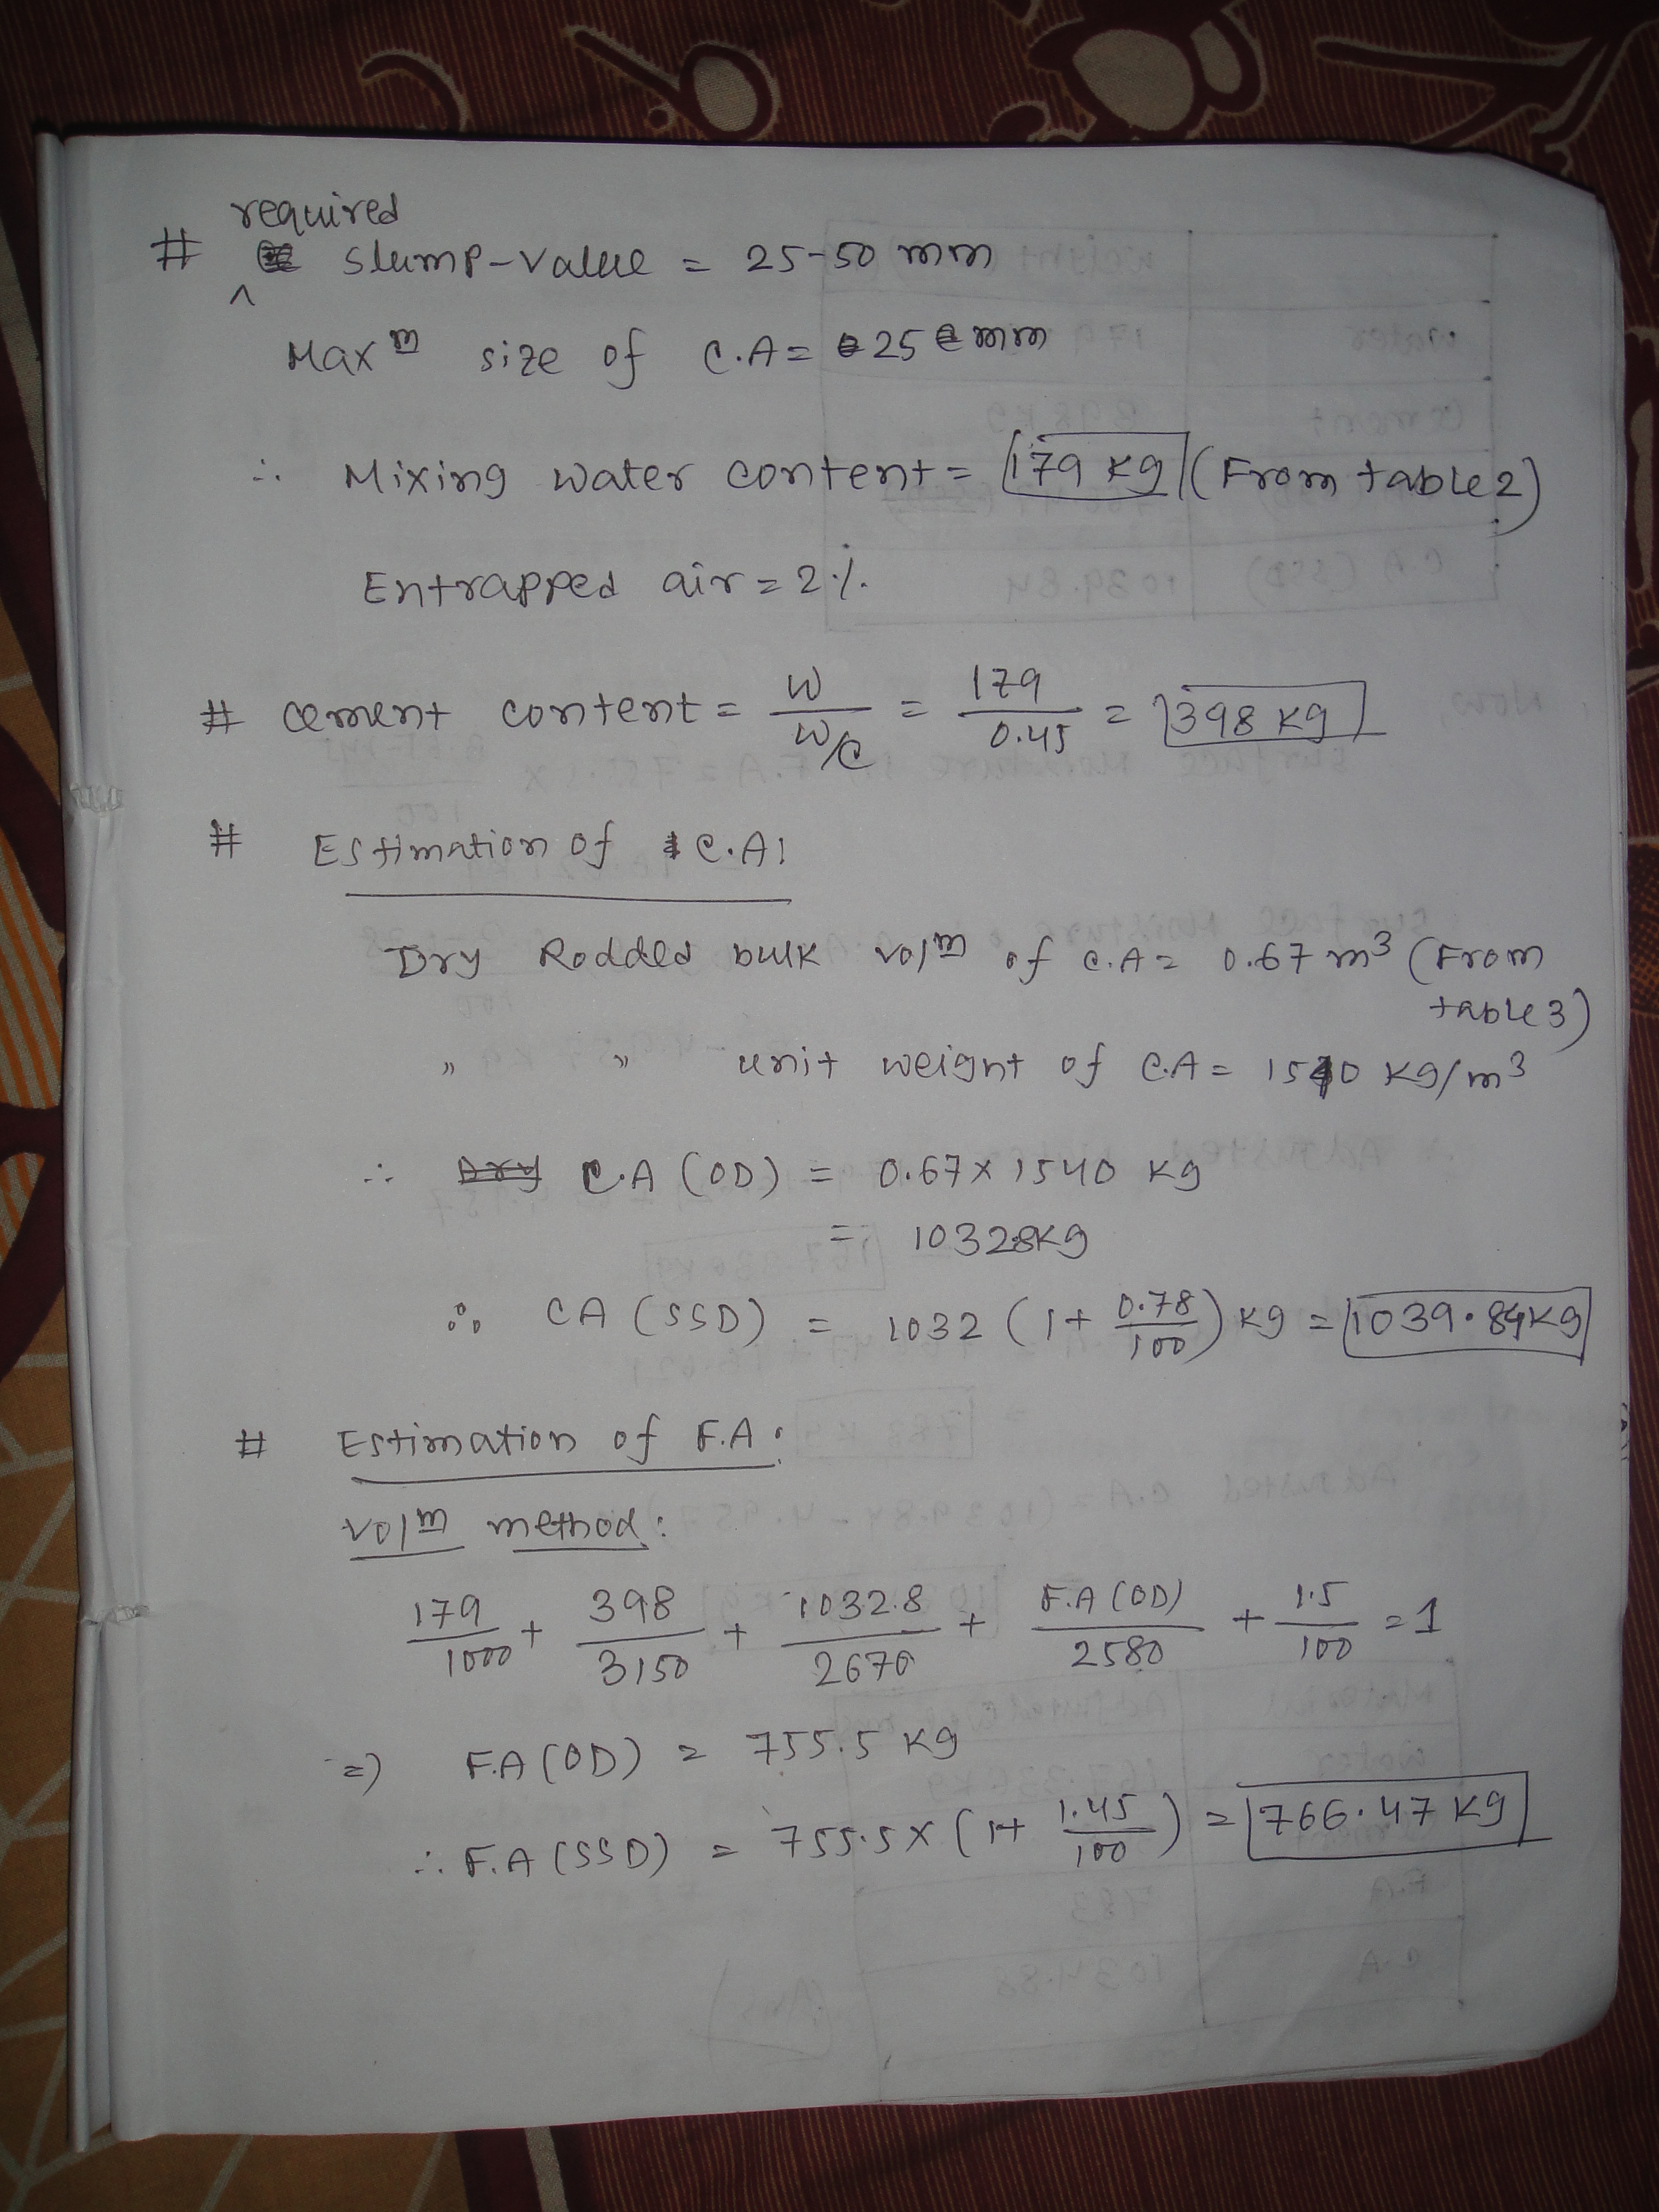 required
# slump-value = 25-50 mm
^
Maxm size of C.A = 25 mm
∴ Mixing water content = 179 kg (From table 2)
Entrapped air = 2%
# cement content = W / W/C = 179 / 0.45 = 398 kg
# Estimation of C.A:
Dry Rodded bulk volm of C.A = 0.67 m³ (From
table 3)
" " unit weight of C.A = 1540 kg/m³
∴ Dry C.A (OD) = 0.67 x 1540 kg
= 1032.8 kg
∴ CA (SSD) = 1032 (1 + 0.78/100) kg = 1039.84 kg
# Estimation of F.A:
volm method:
179/1000 + 398/3150 + 1032.8/2670 + F.A (OD)/2580 + 1.5/100 = 1
=) F.A (OD) = 755.5 kg
∴ F.A (SSD) = 755.5 x (1+ 1.45/100) = 766.47 kg